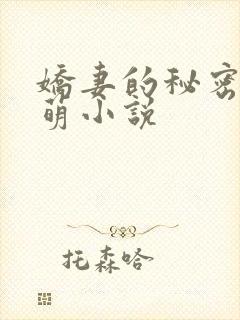 嬌妻的秘密
萌小説
托森哈